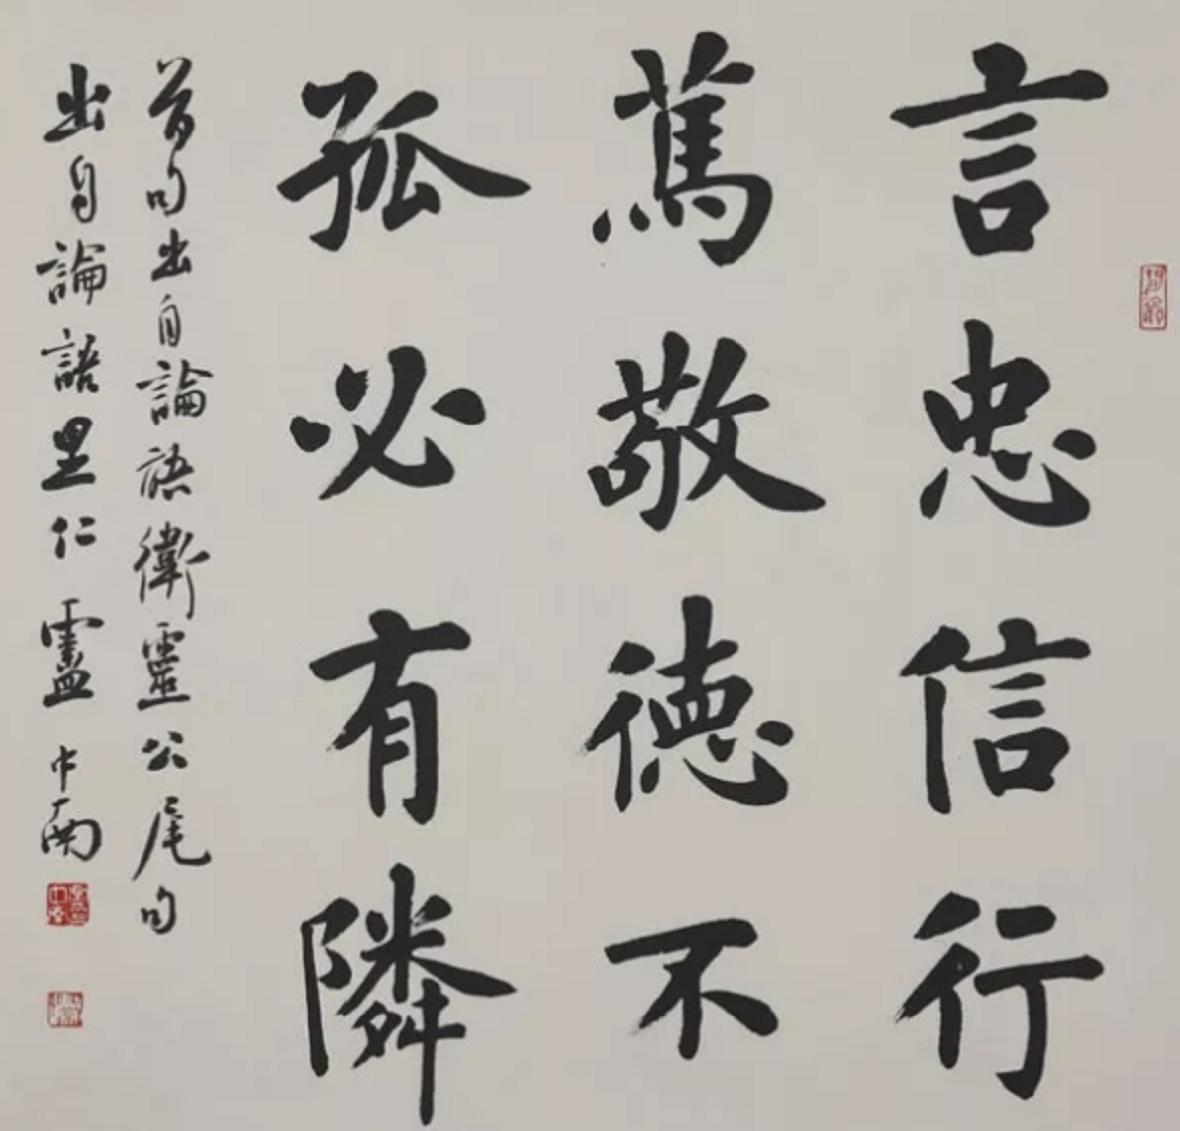 言忠信行
篤敬德不
孤必有隣
首句出自論語衛靈公尾句
出自論語里仁 盧中南